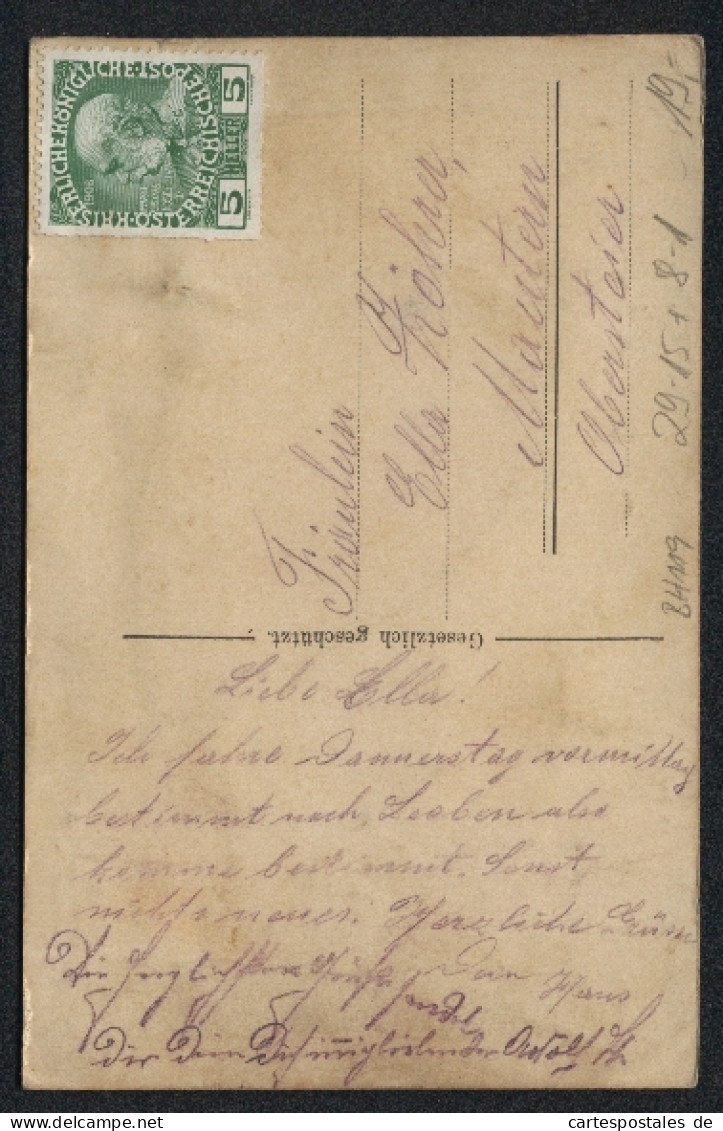 KAISERLICHE KÖNIGLICHE
ÖSTERREICHISCHE POST
1908
5 HELLER 5
Fräulein
Ella
Mautern
Obersteier
19,-
29-15+8-1
84119
Gesetzlich geschützt.
Liebe Ella!
Ich fahre Donnerstag vormittag
bestimmt nach Leoben also
komme bestimmt. Sonst
nichts neues. Herzliche Grüsse
Dein Hans
Die herzlichsten Grüße sendet
dir dein Dich innigliebender Adolf
www.ansichtskartenversand.com
cartespostales.de